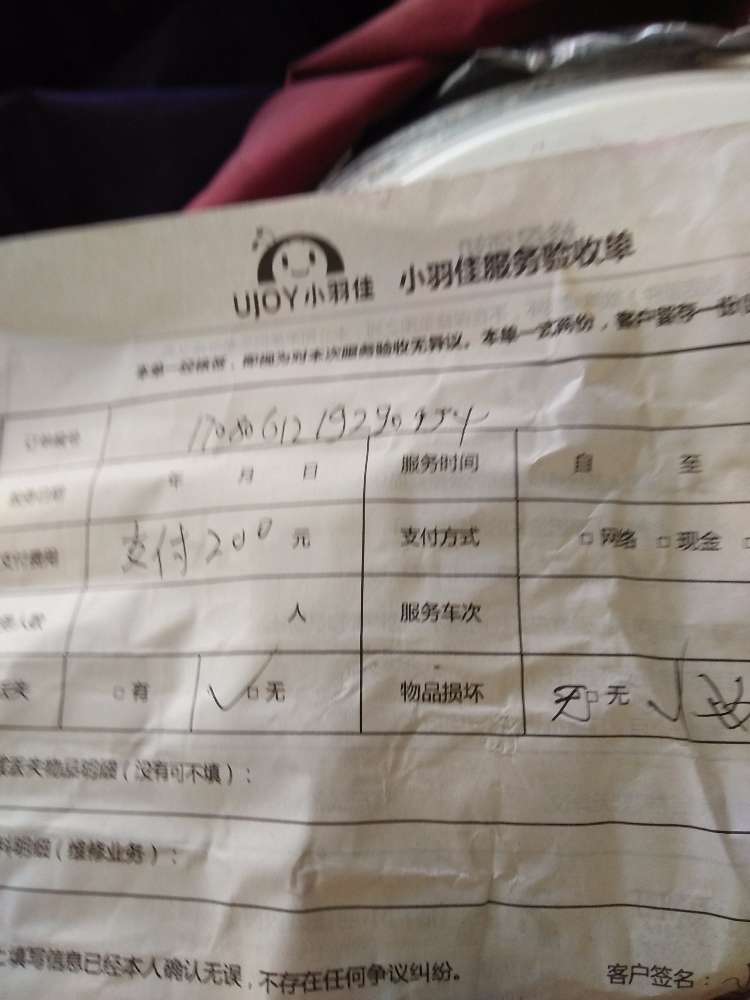 UJOY小羽佳 小羽佳服务验收单
本单一经签署，即视为对本次服务验收无异议。本单一式两份，客户留存一份
订单编号
年 月 日 服务时间 自 至
支付费用 支付200 元 支付方式 □网络 □现金
人 服务车次
□有 ✓□无 物品损坏 □无 ✓
丢失物品明细（没有可不填）：
料明细（维修业务）：
上填写信息已经本人确认无误，不存在任何争议纠纷。 客户签名：